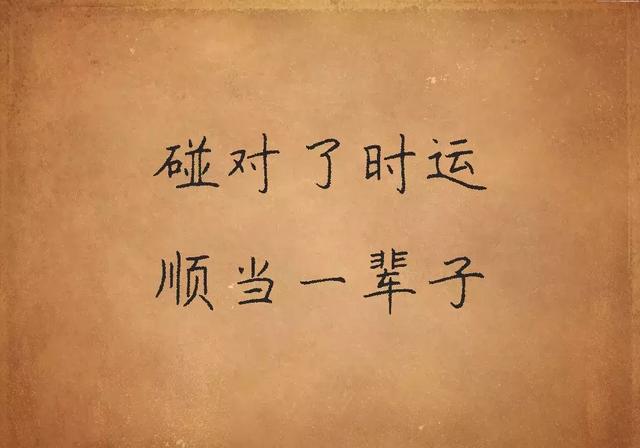 碰对了时运
顺当一辈子